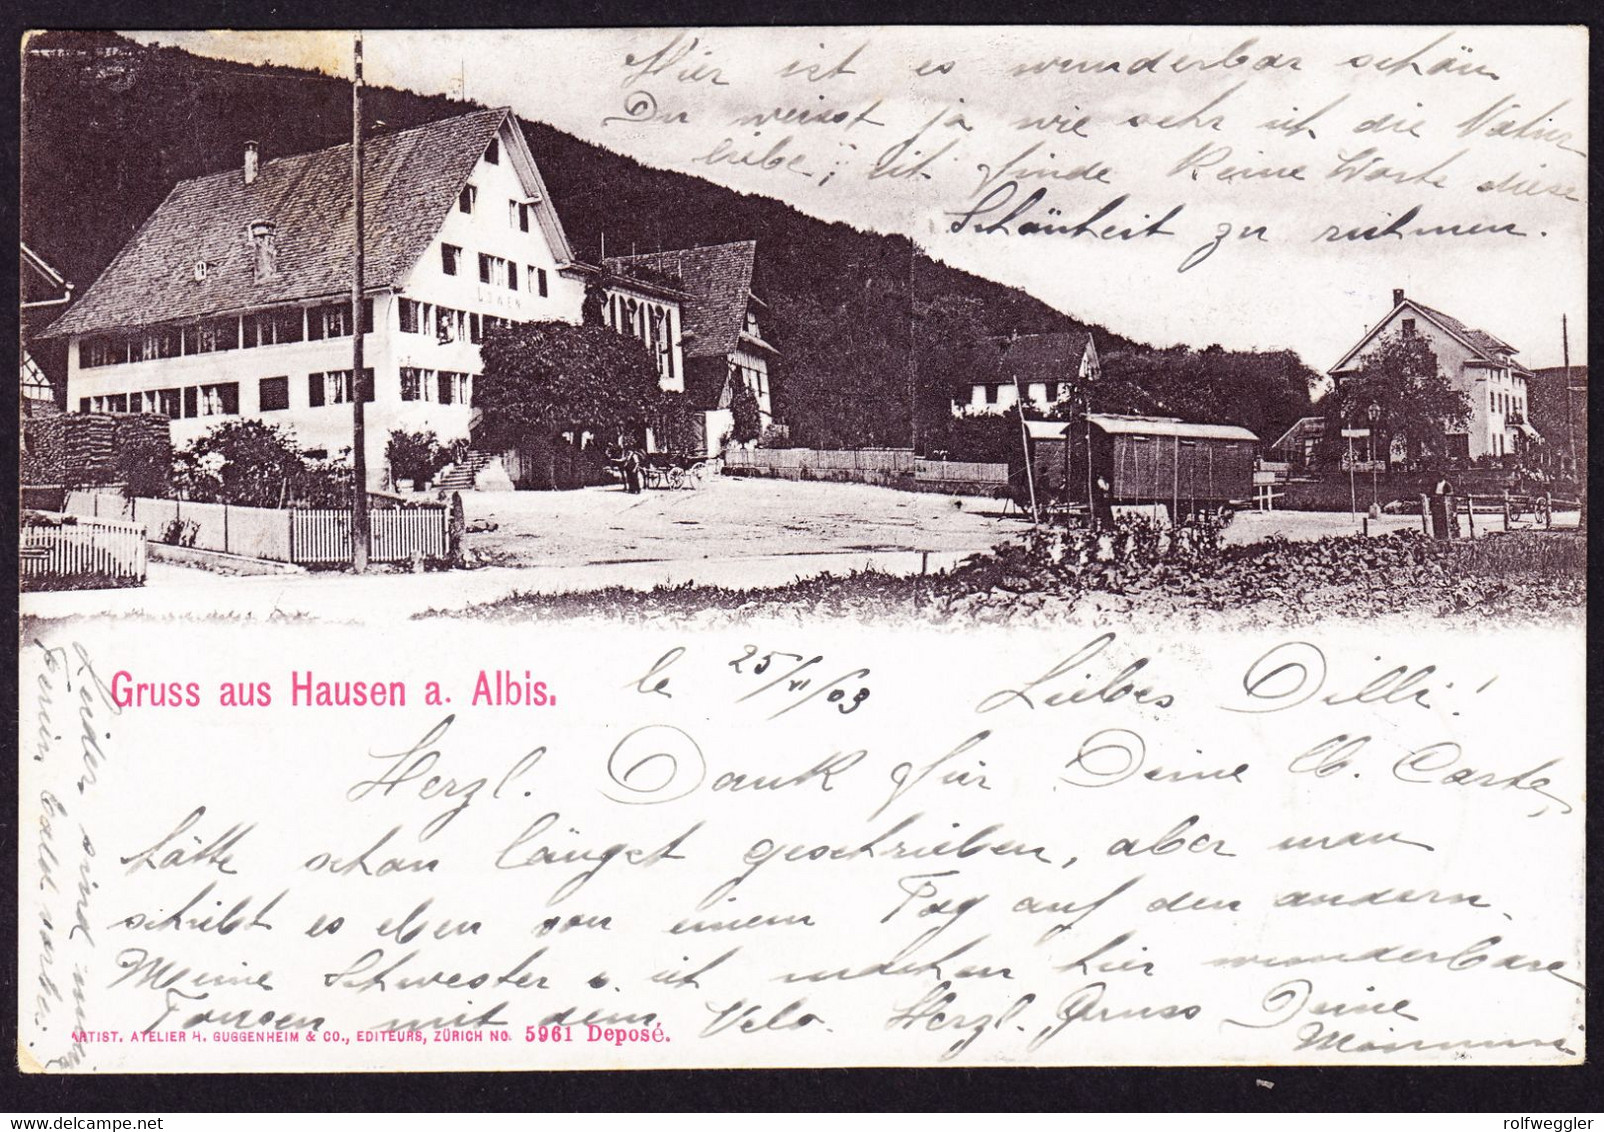 Hier ist es wunderbar schön
Du weisst ja wie sehr ich die Natur
liebe, ich finde keine Worte diese
Schönheit zu rühmen.
LÖWEN
Gruss aus Hausen a. Albis.
le 25/VI/03 Liebes Dilli!
Herzl. Dank für Deine lb. Carte,
hätte schon längst geschrieben, aber man
schribt es eben von einem Tag auf den andern.
Meine Schwester u. ich machen hier wunderbare
Touren mit dem Velo. Herzl. Gruss Deine
Leider sind uns
Ferien bald vorbei.
ARTIST. ATELIER H. GUGGENHEIM & CO., EDITEURS, ZÜRICH NO. 5961 Deposé.
delcampe.net
rolfweggler